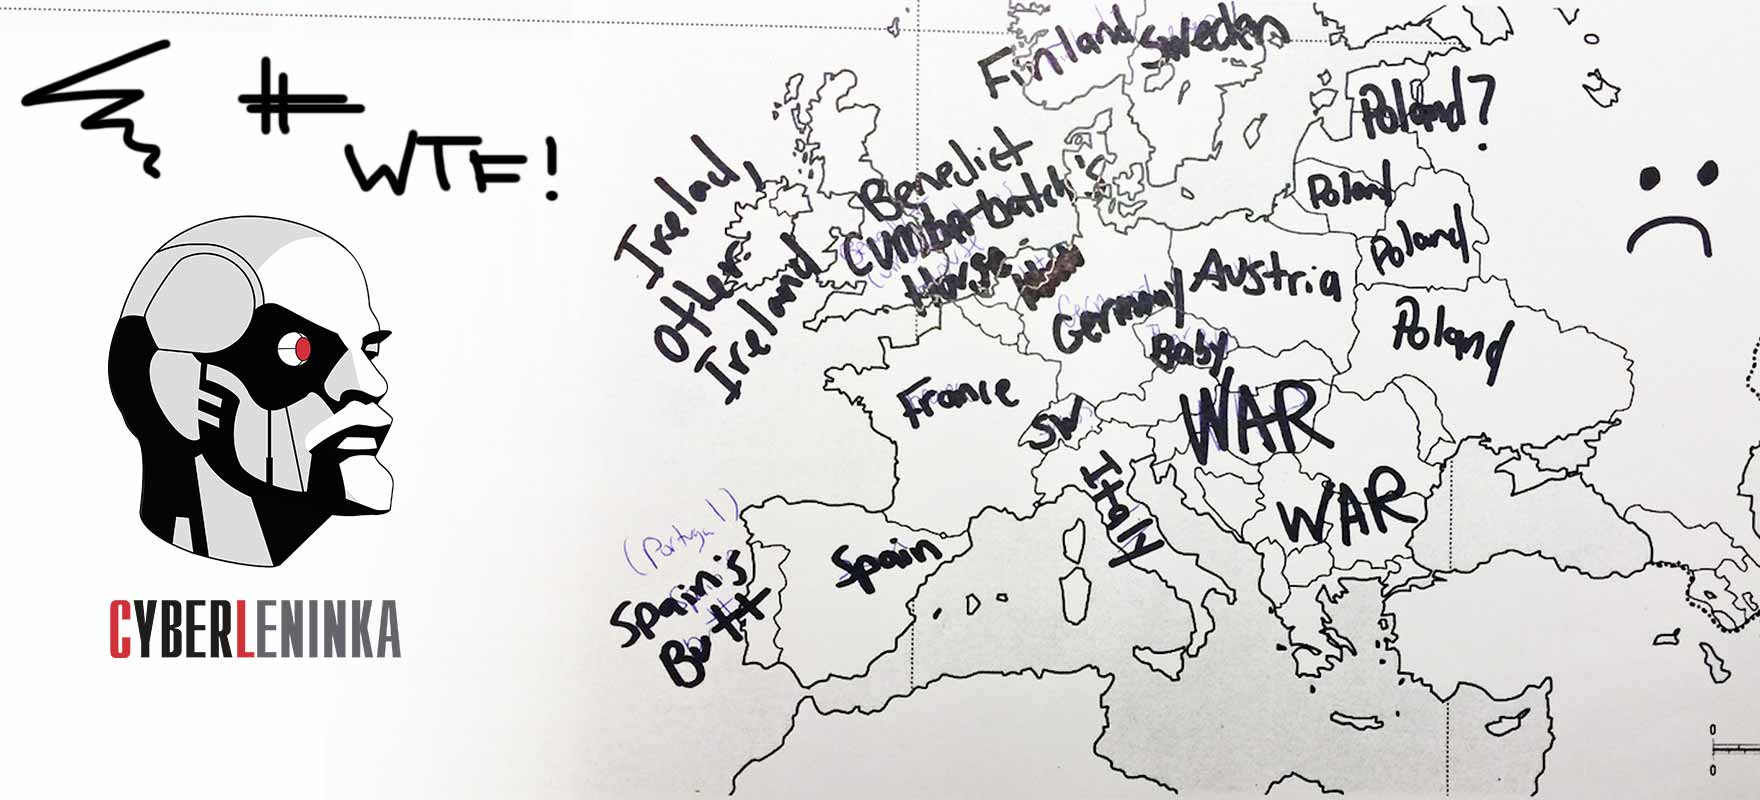 # WTF!
CYBERLENINKA
Finland
Sweden
Poland?
Irelad,
Other
Ireland
Benedict
Cumberbatch's
House
Poland
Poland
Austria
Germany
Poland
Baby
France
SW
WAR
Italy
WAR
(Portugal)
Spain's
Butt
Spain
0
0